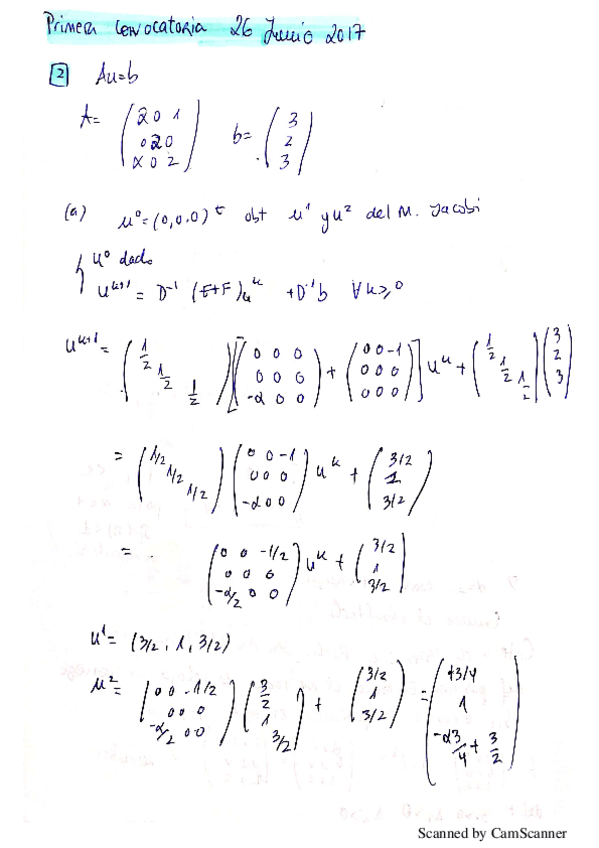 Primera Convocatoria 26 Junio 2017
2 Au=b
A= (2 0 1
0 2 0
α 0 2) b= (3
2
3)
(a) u⁰=(0,0,0)ᵗ obt u¹ y u² del M. Jacobi
u⁰ dado
uᵏ⁺¹= D⁻¹ (E+F)uᵏ +D⁻¹b ∀k≥0
uᵏ⁺¹= (1/2 1/2 1/2) [(0 0 0
0 0 0
-α 0 0) + (0 0 -1
0 0 0
0 0 0)] uᵏ + (1/2 1/2 1/2) (3
2
3)
= (1/2 1/2 1/2) (0 0 -1
0 0 0
-α 0 0) uᵏ + (3/2
1
3/2)
= (0 0 -1/2
0 0 0
-α/2 0 0) uᵏ + (3/2
1
3/2)
u¹= (3/2, 1, 3/2)
u²= (0 0 -1/2
0 0 0
-α/2 0 0) (3/2
1
3/2) + (3/2
1
3/2) = (+3/4
1
-α3/4 + 3/2)
Scanned by CamScanner